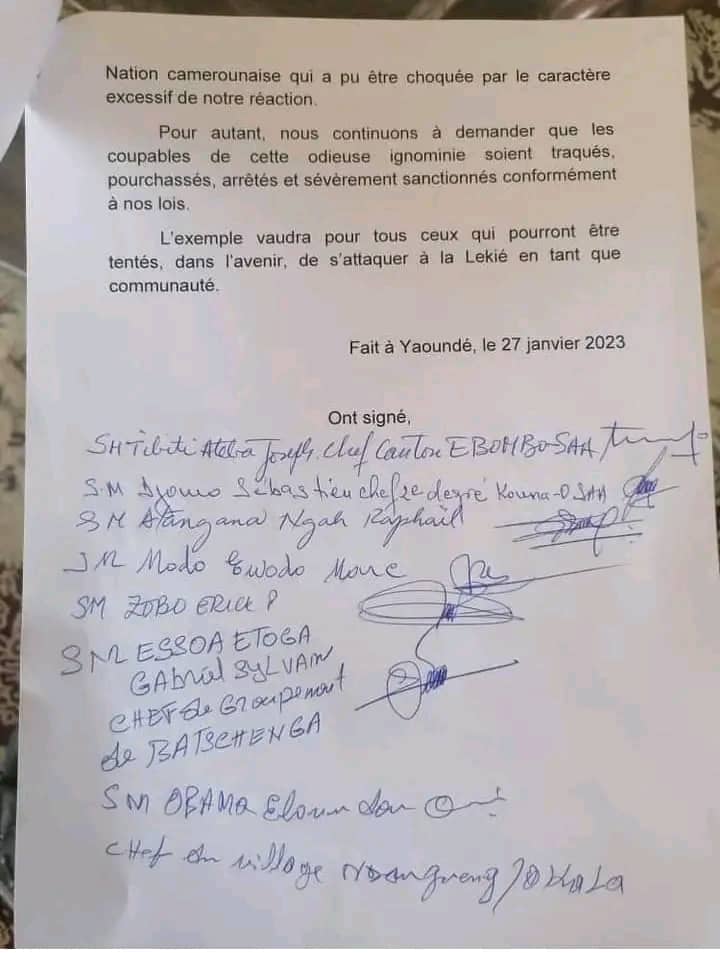 Nation camerounaise qui a pu être choquée par le caractère
excessif de notre réaction.
Pour autant, nous continuons à demander que les
coupables de cette odieuse ignominie soient traqués,
pourchassés, arrêtés et sévèrement sanctionnés conformément
à nos lois.
L'exemple vaudra pour tous ceux qui pourront être
tentés, dans l'avenir, de s'attaquer à la Lekié en tant que
communauté.
Fait à Yaoundé, le 27 janvier 2023
Ont signé,
Ateba Joseph. Chef Canton EBOMBO SAA
S.M Sébastien chef 2e degré Kouna-O SAA
SM Atangana Ngah Raphaël
SM Modo Ewodo
SM ZOBO ERICK P
SM ESSOA ETOGA
GAbriel SYLVAIN
CHEF de Groupement
de BATSCHENGA
SM OBAMA
CHef du village